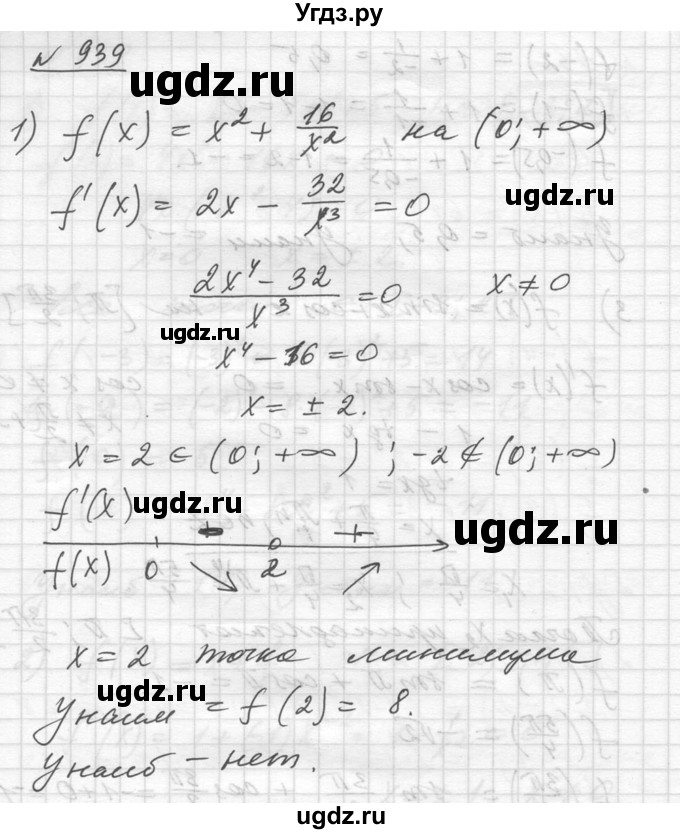 Угдз.ру
№ 939
ugdz.ru
1) f(x) = x² + 16/x² на (0; +∞)
f'(x) = 2x − 32/x³ = 0
ugdz.ru
(2x⁴ − 32)/x³ = 0 x ≠ 0
ugdz.ru
x⁴ − 16 = 0
x = ± 2.
x = 2 ∈ (0; +∞) ; −2 ∉ (0; +∞)
f'(x) − +
ugdz.ru ugdz.ru
f(x) 0 ↘ 2 ↗
x = 2 точка минимума
ugdz.ru
y наим = f(2) = 8.
y наиб − нет.
ugdz.ru